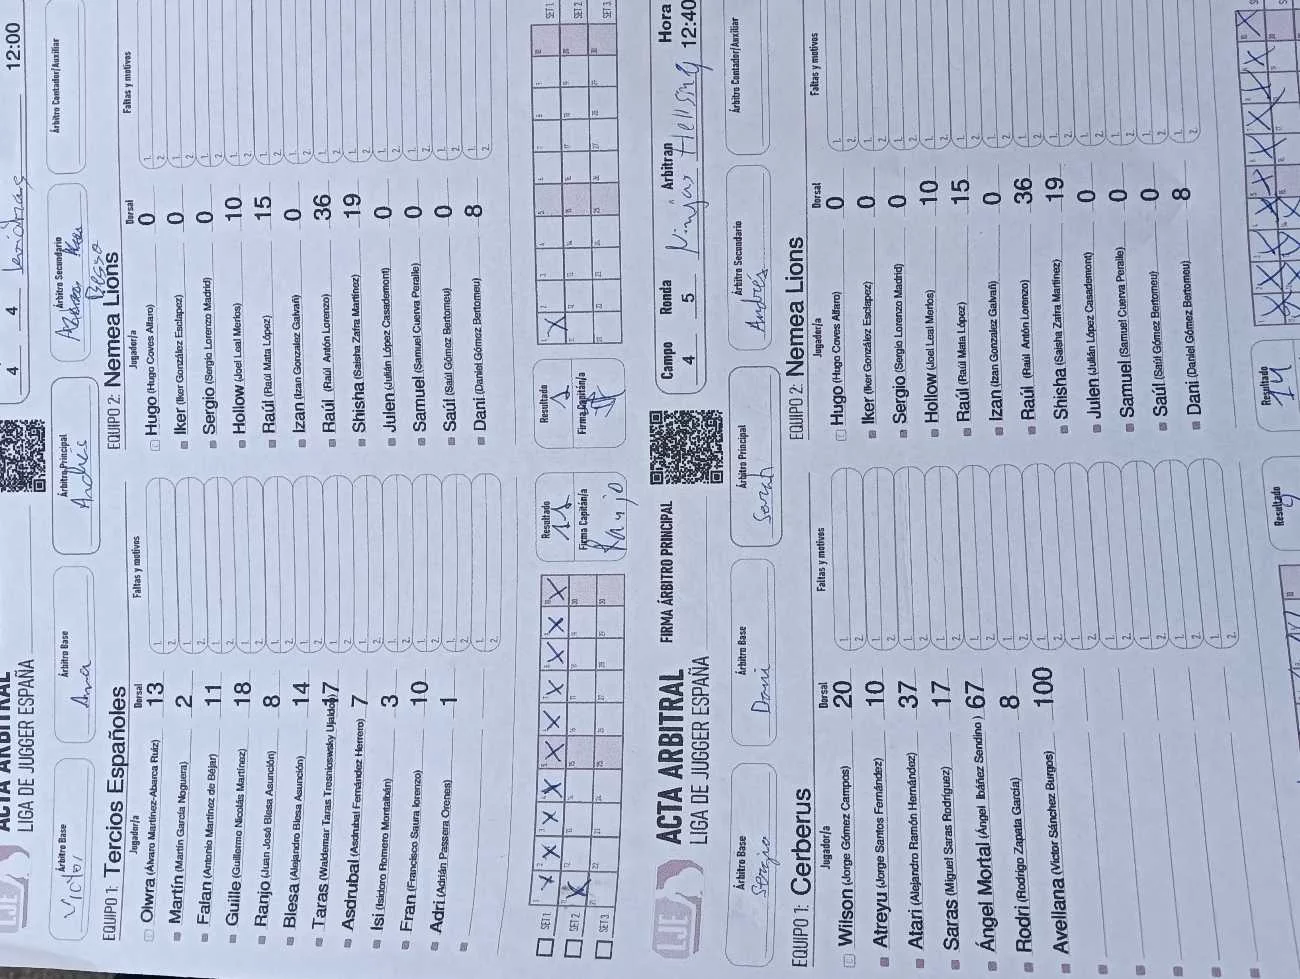 ACTA ARBITRAL
LIGA DE JUGGER ESPAÑA
4 4 Leviatanas 12:00
LJE
Árbitro Base Victor
Árbitro Base Ana
Árbitro Principal Andrés
Árbitro Secundario
Árbitro Contador/Auxiliar
EQUIPO 1: Tercios Españoles
Jugador/a Dorsal Faltas y motivos
Olwra (Álvaro Martínez-Abarca Ruiz) 13
Martín (Martín García Noguera) 2
Falan (Antonio Martínez de Béjar) 11
Guille (Guillermo Nicolás Martínez) 18
Ranjo (Juan José Blesa Asunción) 8
Blesa (Alejandro Blesa Asunción) 14
Taras (Waldemar Taras Tresniowsky Ujaldón) 17
Asdrubal (Asdrubal Fernández Herrero) 7
Isi (Isidoro Romero Montalbán) 3
Fran (Francisco Saura lorenzo) 10
Adri (Adrián Passera Orenes) 1
EQUIPO 2: Nemea Lions
Jugador/a Dorsal Faltas y motivos
Hugo (Hugo Coves Alfaro) 0
Iker (Iker González Esclapez) 0
Sergio (Sergio Lorenzo Madrid) 0
Hollow (Joel Leal Merlos) 10
Raúl (Raúl Mata López) 15
Izan (Izan Gonzalez Galvañ) 0
Raúl (Raúl Antón Lorenzo) 36
Shisha (Saisha Zafra Martínez) 19
Julen (Julián López Casademont) 0
Samuel (Samuel Cuerva Peralle) 0
Saúl (Saúl Gómez Bertomeu) 0
Dani (Daniel Gómez Bertomeu) 8
SET 1
SET 2
SET 3
Resultado 11
Firma Capitán/a Ranjo
Resultado 1
Firma Capitán/a
SET 1
SET 2
SET 3
LJE
ACTA ARBITRAL
LIGA DE JUGGER ESPAÑA
FIRMA ÁRBITRO PRINCIPAL
Campo Ronda Arbitran Hora
4 5 Ninjas Hellsing 12:40
Árbitro Base Sergio
Árbitro Base Dani
Árbitro Principal Sarah
Árbitro Secundario Andrés
Árbitro Contador/Auxiliar
EQUIPO 1: Cerberus
Jugador/a Dorsal Faltas y motivos
Wilson (Jorge Gómez Campos) 20
Atreyu (Jorge Santos Fernández) 10
Atari (Alejandro Ramón Hernández) 37
Saras (Miguel Saras Rodríguez) 17
Ángel Mortal (Ángel Ibáñez Sendino ) 67
Rodri (Rodrigo Zapata García) 8
Avellana (Victor Sánchez Burgos) 100
EQUIPO 2: Nemea Lions
Jugador/a Dorsal Faltas y motivos
Hugo (Hugo Coves Alfaro) 0
Iker (Iker González Esclapez) 0
Sergio (Sergio Lorenzo Madrid) 0
Hollow (Joel Leal Merlos) 10
Raúl (Raúl Mata López) 15
Izan (Izan Gonzalez Galvañ) 0
Raúl (Raúl Antón Lorenzo) 36
Shisha (Saisha Zafra Martínez) 19
Julen (Julián López Casademont) 0
Samuel (Samuel Cuerva Peralle) 0
Saúl (Saúl Gómez Bertomeu) 0
Dani (Daniel Gómez Bertomeu) 8
Resultado 9
Resultado 14